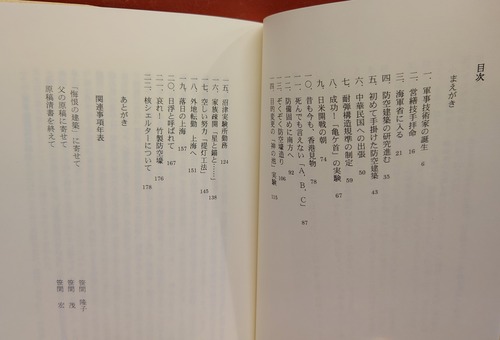 目次
まえがき
一、軍事技術家の誕生 6
二、営繕技手拝命 16
三、海軍省に入る 21
四、防空建築の研究進む 35
五、初めて手掛けた防空建築 43
六、中華民国への出張 50
七、耐弾構造規準の制定 59
八、成功！「亀ケ首」の実験 67
九、日米開戦の朝 74
一〇、昔も今も、香港見物 78
一一、死んでも言えない「A、B、C」 87
一二、防備固めに南方へ 92
一三、ぞくぞく防空壕造り 106
一四、目的変更の「神の池」実験
一五、沼津実験所勤務 124
一六、家族疎開「星と錨と……」 138
一七、空しい努力「提灯工法」 145
一八、外地転勤、上海へ 151
一九、落日の上海 157
二〇、日俘と呼ばれて 167
二一、哀れ！竹製防空壕 176
二二、核シェルターについて 178
関連事項年表
あとがき
「悔恨の建築」に寄せて 笹間 陽子
父の原稿に寄せて 笹間 茂
原稿清書を終えて 笹間 宏